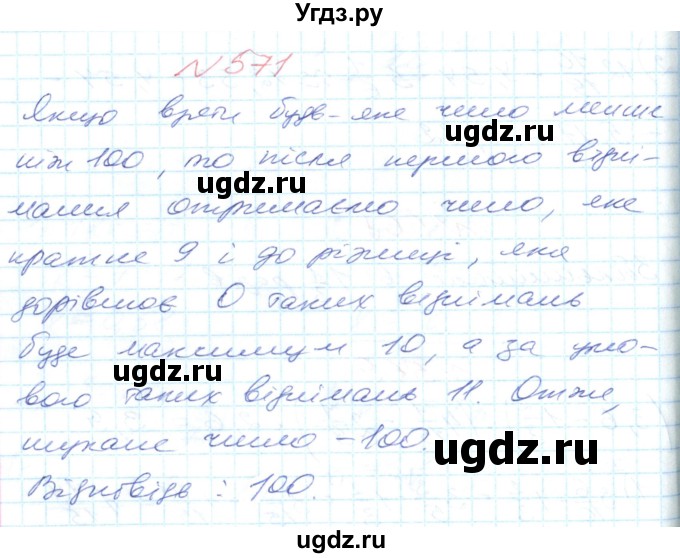 Угдз.ру
№571
Якщо взяти будь-яке число менше
ніж 100, то після першого відні-
мання отримаємо число, яке
кратне 9 і до різниці, яка
дорівнює 0 таких віднімань
буде максимум 10, а за умо-
вою таких віднімань 11. Отже,
шукане число - 100.
Відповідь: 100.
ugdz.ru
ugdz.ru
ugdz.ru
ugdz.ru
ugdz.ru
ugdz.ru
ugdz.ru